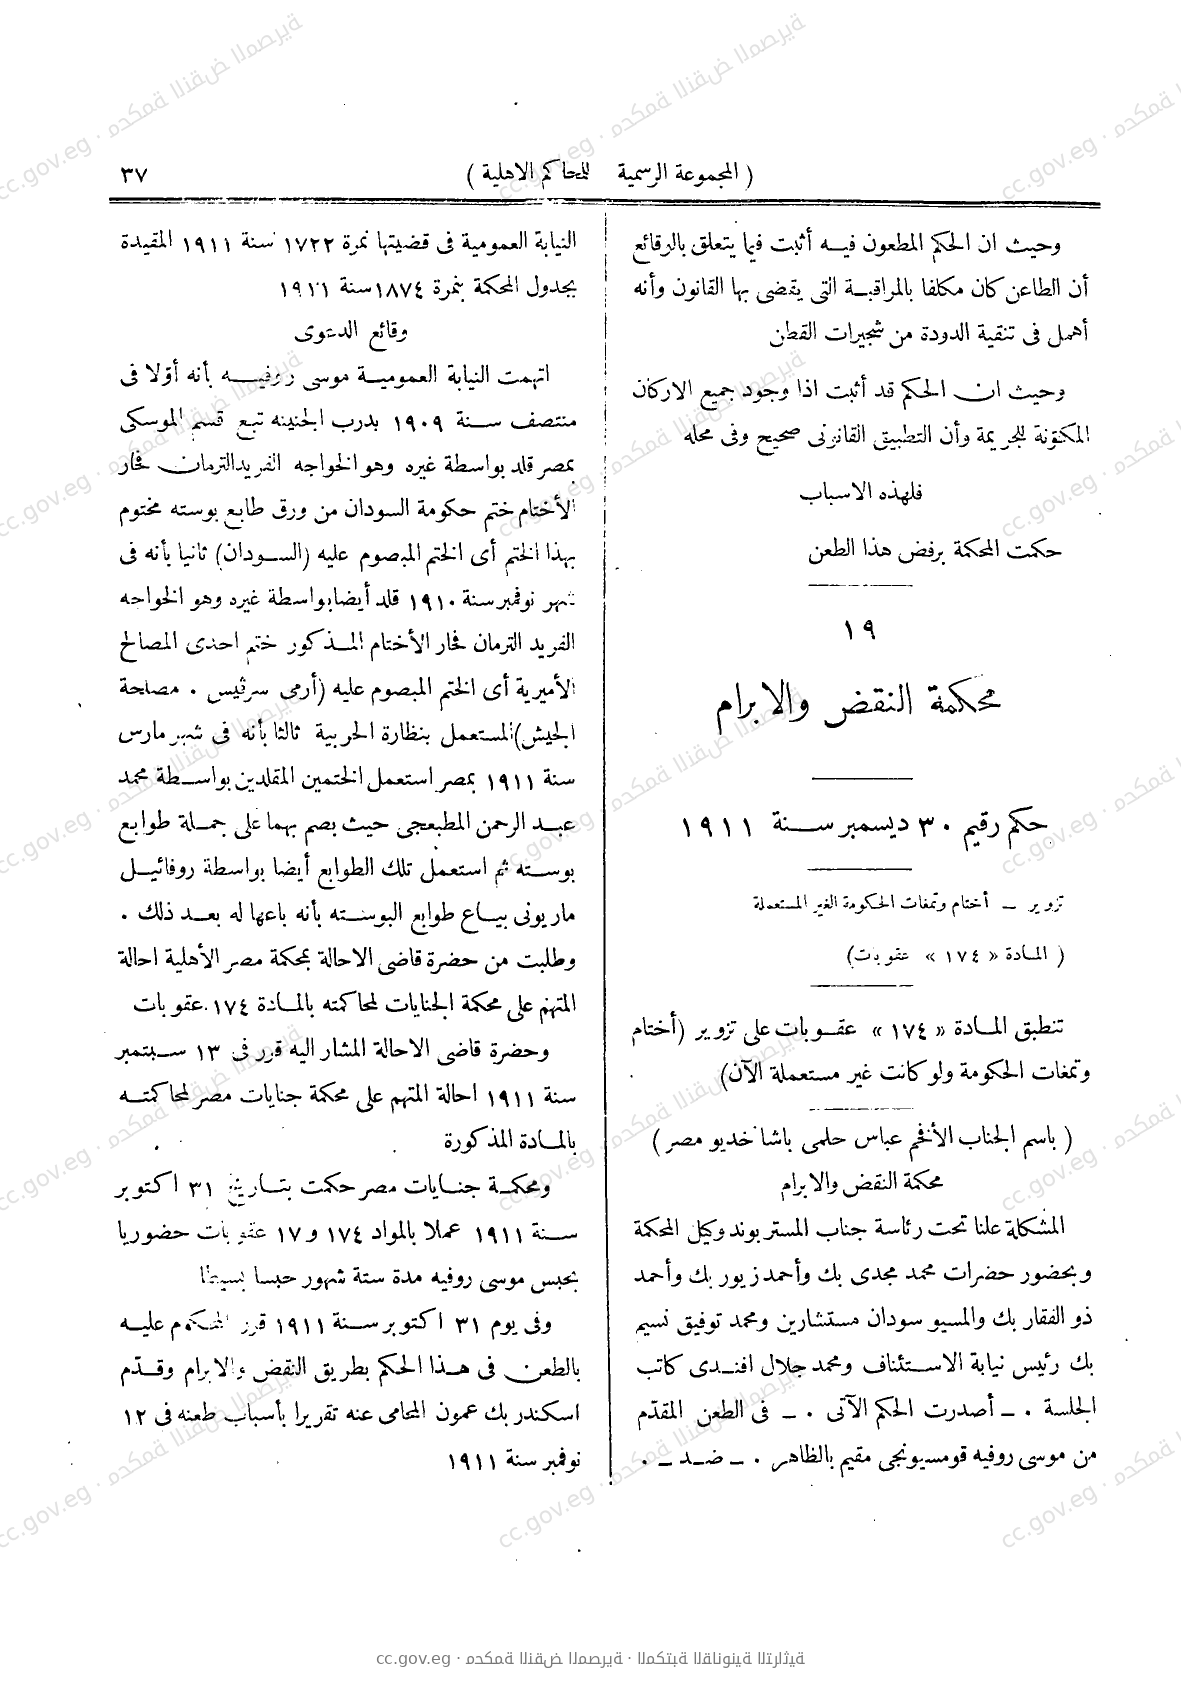 ( المجموعة الرسمية للمحاكم الاهلية )
٣٧
وحيث ان الحكم المطعون فيه أثبت فيما يتعلق بالوقائع
أن الطاعن كان مكلفا بالمراقبة التى يقضى بها القانون وأنه
أهمل فى تنقية الدودة من شجيرات القطن
وحيث ان الحكم قد أثبت اذا وجود جميع الاركان
المكوّنة للجريمة وأن التطبيق القانونى صحيح وفى محله
فلهذه الاسباب
حكمت المحكمة برفض هذا الطعن
١٩
محكمة النقض والابرام
حكم رقيم ٣٠ ديسمبر سنة ١٩١١
تزوير – أختام وتمغات الحكومة الغير المستعملة
( المادة « ١٧٤ » عقوبات)
تنطبق المادة « ١٧٤ » عقوبات على تزوير (أختام
وتمغات الحكومة ولو كانت غير مستعملة الآن)
( باسم الجناب الأفخم عباس حلمى باشا خديو مصر )
محكمة النقض والابرام
المشكلة علنا تحت رئاسة جناب المستر بوند وكيل المحكمة
وبحضور حضرات محمد مجدى بك وأحمد زيور بك وأحمد
ذو الفقار بك والمسيو سودان مستشارين ومحمد توفيق نسيم
بك رئيس نيابة الاستئناف ومحمد جلال افندى كاتب
الجلسة . – أصدرت الحكم الآتى . – فى الطعن المقدّم
من موسى روفيه قومسيونجى مقيم بالظاهر . – ضد – .
النيابة العمومية فى قضيتها نمرة ١٧٢٢ سنة ١٩١١ المقيدة
بجدول المحكمة بنمرة ١٨٧٤ سنة ١٩١١
وقائع الدعوى
اتهمت النيابة العمومية موسى روفيه بأنه أوّلا فى
منتصف سنة ١٩٠٩ بدرب الجنينه تبع قسم الموسكى
بمصر قلد بواسطة غيره وهو الخواجه الفريد الترمان فحار
الأختام ختم حكومة السودان من ورق طابع بوسته مختوم
بهذا الختم أى الختم المبصوم عليه (السودان) ثانيا بأنه فى
شهر نوفمبر سنة ١٩١٠ قلد أيضا بواسطة غيره وهو الخواجه
الفريد الترمان فحار الأختام المذكور ختم احدى المصالح
الأميرية أى الختم المبصوم عليه (أرمى سرڤيس . مصلحة
الجيش) المستعمل بنظارة الحربية ثالثا بأنه فى شهر مارس
سنة ١٩١١ بمصر استعمل الختمين المقلدين بواسطة محمد
عبد الرحمن المطبعجى حيث بصم بهما على جملة طوابع
بوسته ثم استعمل تلك الطوابع أيضا بواسطة روفائيل
ماريونى بياع طوابع البوسته بأنه باعها له بعد ذلك .
وطلبت من حضرة قاضى الاحالة بمحكمة مصر الأهلية احالة
المتهم على محكمة الجنايات لمحاكمته بالمادة ١٧٤ عقوبات
وحضرة قاضى الاحالة المشار اليه قرر فى ١٣ سبتمبر
سنة ١٩١١ احالة المتهم على محكمة جنايات مصر لمحاكمته
بالمادة المذكورة
ومحكمة جنايات مصر حكمت بتاريخ ٣١ اكتوبر
سنة ١٩١١ عملا بالمواد ١٧٤ و ١٧ عقوبات حضوريا
بحبس موسى روفيه مدة ستة شهور حبسا بسيطا
وفى يوم ٣١ اكتوبر سنة ١٩١١ قرر المحكوم عليه
بالطعن فى هذا الحكم بطريق النقض والابرام وقدّم
اسكندر بك عمون المحامى عنه تقريرا بأسباب طعنه فى ١٢
نوفمبر سنة ١٩١١
cc.gov.eg · محكمة النقض المصرية · المكتبة القانونية التراثية